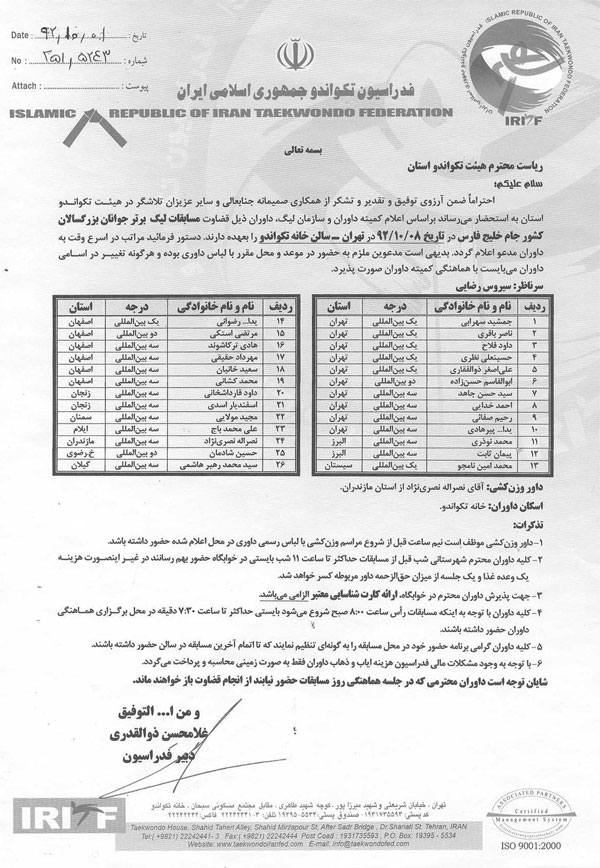 Date : ۹۲,۱۰,۰۱ تاریخ :
No : ۲۵۱,۵۲۴۳ شماره :
Attach : پیوست :
ISLAMIC REPUBLIC OF IRAN TAEKWONDO FEDERATION
IRITF
فدراسیون تکواندو جمهوری اسلامی ایران
ISLAMIC REPUBLIC OF IRAN TAEKWONDO FEDERATION
بسمه تعالی
ریاست محترم هیئت تکواندو استان
سلام علیکم؛
احتراماً ضمن آرزوی توفیق و تقدیر و تشکر از همکاری صمیمانه جنابعالی و سایر عزیزان تلاشگر در هیئت تکواندو
استان به استحضار می‌رساند براساس اعلام کمیته داوران و سازمان لیگ، داوران ذیل قضاوت مسابقات لیگ برتر جوانان بزرگسالان
کشور جام خلیج فارس در تاریخ ۹۲/۱۰/۰۸ در تهران – سالن خانه تکواندو را بعهده دارند. دستور فرمائید مراتب در اسرع وقت به
داوران مدعو اعلام گردد. بدیهی است مدعوین ملزم به حضور در موعد و محل مقرر با لباس داوری بوده و هرگونه تغییر در اسامی
داوران می‌بایست با هماهنگی کمیته داوران صورت پذیرد.
سرناظر: سیروس رضایی
ردیف نام و نام خانوادگی درجه استان
۱ جمشید سهرابی یک بین‌المللی تهران
۲ ناصر باقری یک بین‌المللی تهران
۳ داود فلاح یک بین‌المللی تهران
۴ حسینعلی نظری یک بین‌المللی تهران
۵ علی‌اصغر ذوالفقاری یک بین‌المللی تهران
۶ ابوالقاسم حسن‌زاده دو بین‌المللی تهران
۷ سید حسن جاهد سه بین‌المللی تهران
۸ احمد خدایی سه بین‌المللی تهران
۹ رحیم صفائی سه بین‌المللی تهران
۱۰ یدا... پیرهادی سه بین‌المللی تهران
۱۱ محمد نوذری سه بین‌المللی البرز
۱۲ پیمان ثابت سه بین‌المللی البرز
۱۳ محمد امین نامجو یک بین‌المللی سیستان
ردیف نام و نام خانوادگی درجه استان
۱۴ یدا... رضوانی یک بین‌المللی اصفهان
۱۵ مرتضی استکی دو بین‌المللی اصفهان
۱۶ هادی ترکاشوند سه بین‌المللی اصفهان
۱۷ مهرداد حقیقی سه بین‌المللی اصفهان
۱۸ سعید خانیان سه بین‌المللی اصفهان
۱۹ محمد کشانی سه بین‌المللی اصفهان
۲۰ داود قارداشخانی سه بین‌المللی زنجان
۲۱ اسفندیار اسدی سه بین‌المللی زنجان
۲۲ مجید مولایی سه بین‌المللی سمنان
۲۳ علی محمد باج سه بین‌المللی ایلام
۲۴ نصراله نصری‌نژاد سه بین‌المللی مازندران
۲۵ حسین شادمان دو بین‌المللی خ.رضوی
۲۶ سید محمد رهبر هاشمی سه بین‌المللی گیلان
داور وزن‌کشی: آقای نصراله نصری‌نژاد از استان مازندران.
اسکان داوران: خانه تکواندو.
تذکرات:
۱- داور وزن‌کشی موظف است نیم ساعت قبل از شروع مراسم وزن‌کشی با لباس رسمی داوری در محل اعلام شده حضور داشته باشد.
۲- کلیه داوران محترم شهرستانی شب قبل از مسابقات حداکثر تا ساعت ۱۱ شب بایستی در خوابگاه حضور بهم رسانند در غیر اینصورت هزینه
یک وعده غذا و یک جلسه از میزان حق‌الزحمه داور مربوطه کسر خواهد شد.
۳- جهت پذیرش داوران محترم در خوابگاه، ارائه کارت شناسایی معتبر الزامی می‌باشد.
۴- کلیه داوران با توجه به اینکه مسابقات رأس ساعت ۸:۰۰ صبح شروع می‌شود بایستی حداکثر تا ساعت ۷:۳۰ دقیقه در محل برگزاری هماهنگی
داوران حضور داشته باشند.
۵- کلیه داوران گرامی برنامه حضور خود در محل مسابقه را به گونه‌ای تنظیم نمایند که تا اتمام آخرین مسابقه در سالن حضور داشته باشند.
۶- با توجه به وجود مشکلات مالی فدراسیون هزینه ایاب و ذهاب داوران فقط به صورت زمینی محاسبه و پرداخت می‌گردد.
شایان توجه است داوران محترمی که در جلسه هماهنگی روز مسابقات حضور نیابند از انجام قضاوت باز خواهند ماند.
و من ا... التوفیق
غلامحسن ذوالقدری
دبیر فدراسیون
IRITF
تهران ، خیابان شریعتی و شهید میرزا پور، کوچه شهید طاهری ، مقابل مجتمع مسکونی سبحان ، خانه تکواندو
کد پستی: ۱۹۳۱۷۳۵۵۹۳ صندوق پستی: ۵۵۳۴-۱۹۳۹۵ تلفن: ۳-۲۲۲۴۲۴۴۱ فاکس: ۲۲۲۴۲۴۴۴
Taekwondo House, Shahid Taheri Alley, Shahid Mirzapour St, After Sadr Bridge , Dr.Shariati St. Tehran, IRAN
Tel:(+9821) 22242441- 3 Fax:( +9821) 22242444 Post Coad : 1931735593, P.O. Box: 19395 - 5534
Website: www.taekwondoiranfed.com E-mail: info@taekwondofed.com
ASSOCIATED PARTNERS
Certified
Management System
ISO 9001:2000